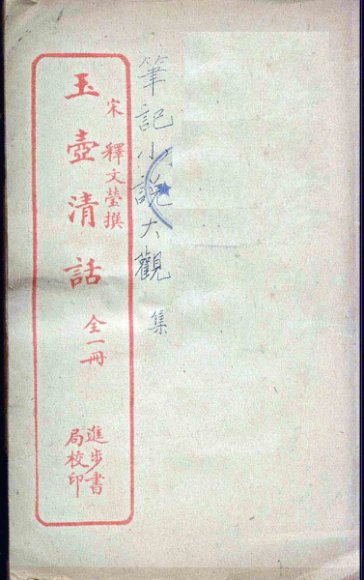 筆記小説大觀 集
宋 釋文瑩撰
玉壺清話 全一冊
進步書
局校印